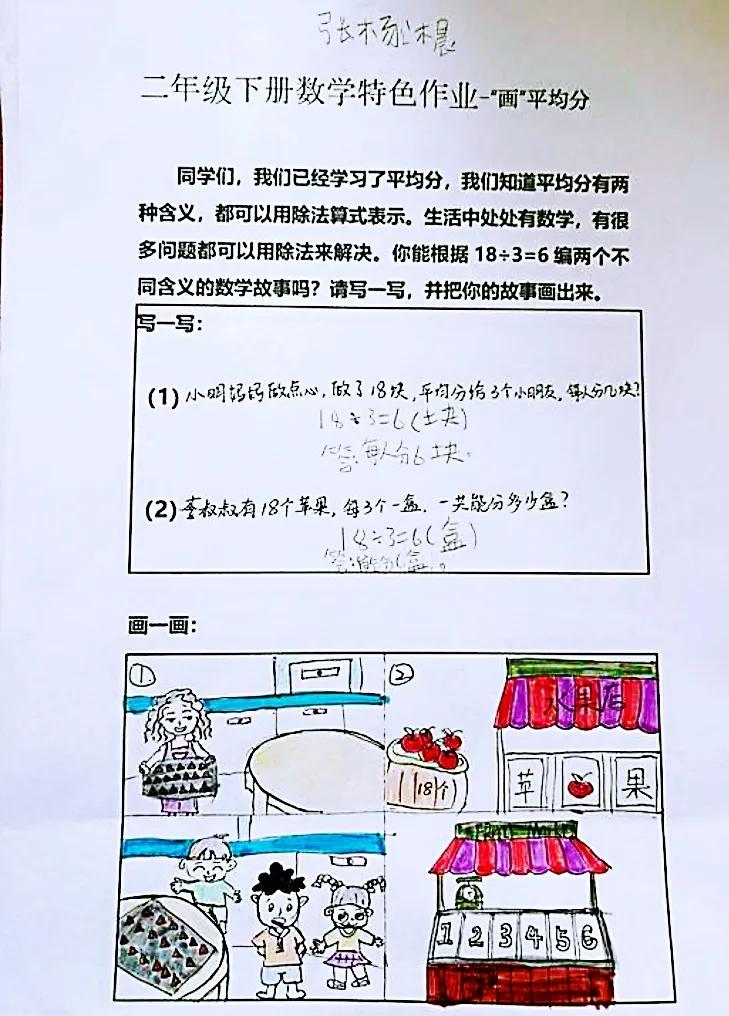 张杨木晨
二年级下册数学特色作业-“画”平均分
同学们，我们已经学习了平均分，我们知道平均分有两
种含义，都可以用除法算式表示。生活中处处有数学，有很
多问题都可以用除法来解决。你能根据 18÷3=6 编两个不
同含义的数学故事吗？请写一写，并把你的故事画出来。
写一写：
(1) 小明妈妈做点心，做了18块，平均分给3个小朋友，每人分几块？
18÷3=6(块)
答：每人分6块。
(2) 李叔叔有18个苹果，每3个一盒，一共能分多少盒？
18÷3=6(盒)
答：能分6盒。
画一画：
① ②
水果店
18个
苹 果
FRUIT Market
1 2 3 4 5 6